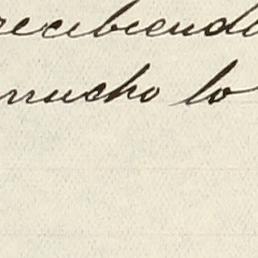 recibiendo
mucho lo